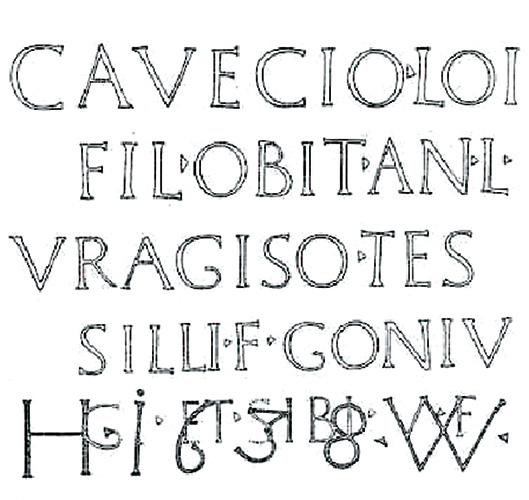 CAVECIO·LOI
FIL·OBIT·AN·L·
VRAGISO·TES
SILLI·F·GONIV
G·ET·SIBI·V·F·